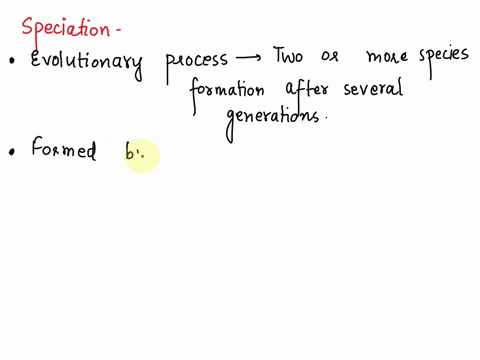 Speciation -
• Evolutionary process → Two or more species
formation after several
generations.
• Formed